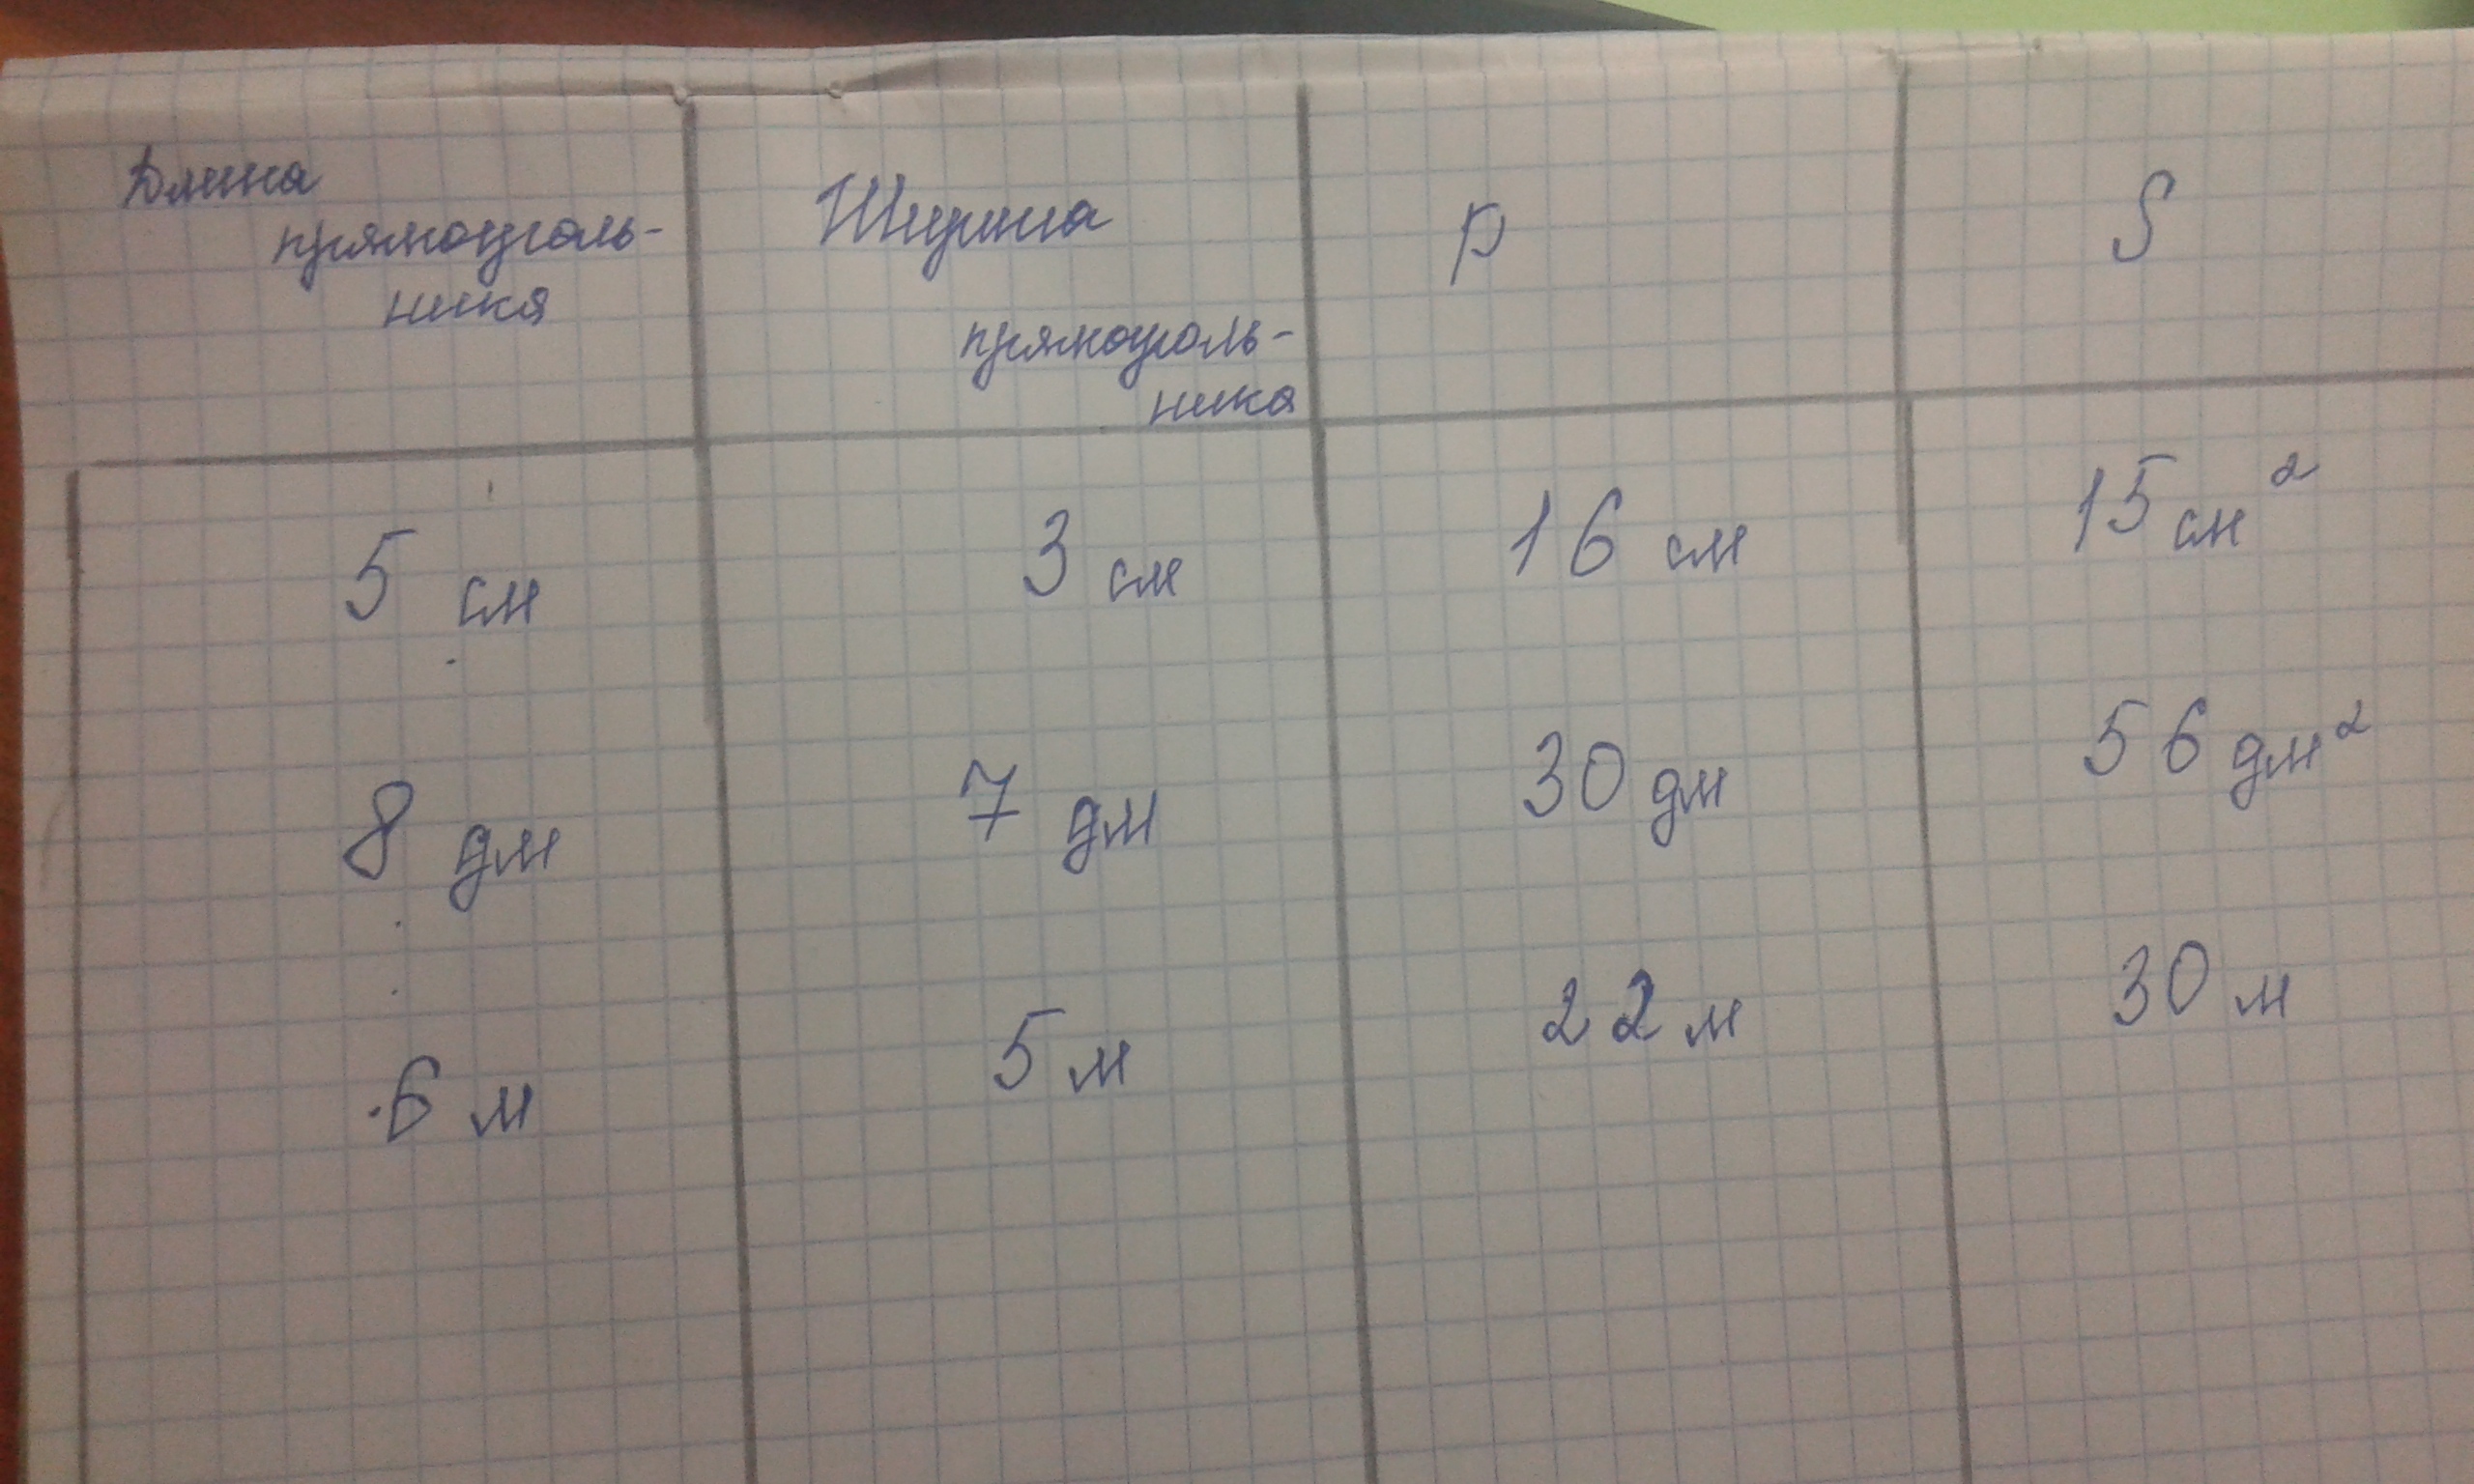 Длина
прямоуголь-
ника
Ширина
прямоуголь-
ника
P
S
5 см
3 см
16 см
15 см²
8 дм
7 дм
30 дм
56 дм²
6 м
5 м
22 м
30 м